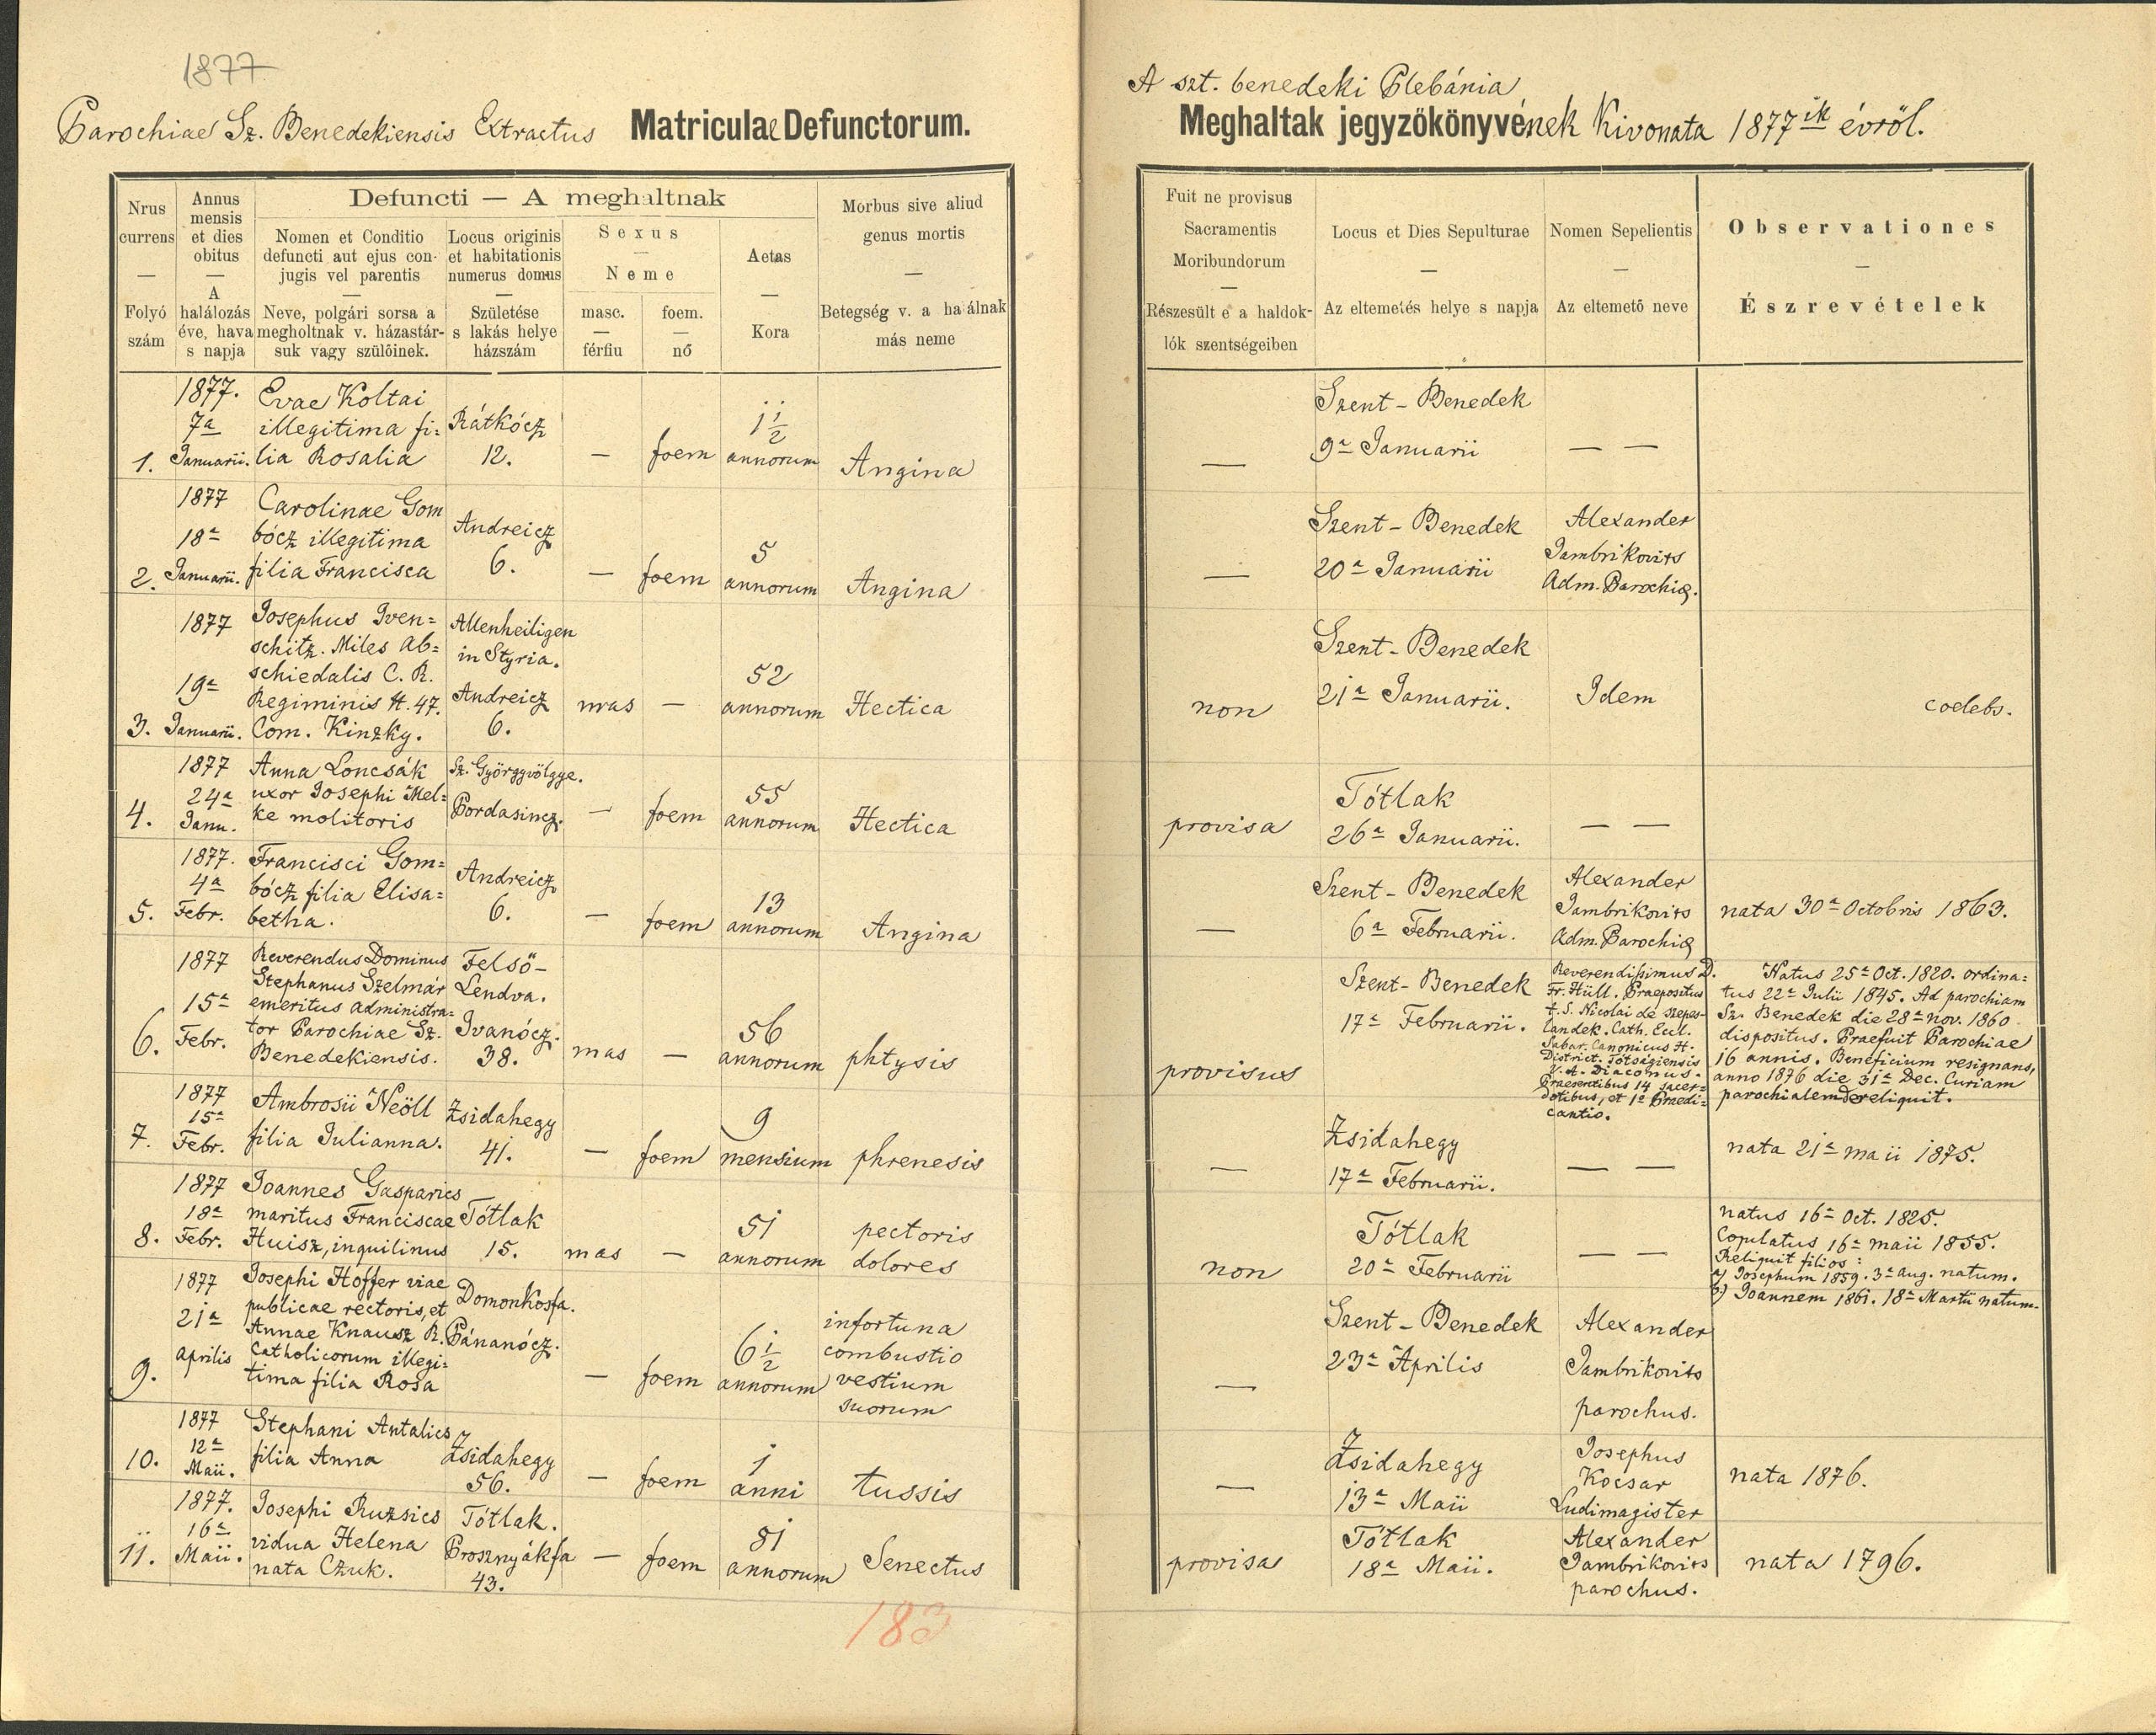 1877
Parochiae Sz. Benedekiensis Extractus Matriculae Defunctorum.
Nrus currens — Folyó szám
Annus mensis et dies obitus — A halálozás éve, hava s napja
Defuncti — A meghaltnak
Nomen et Conditio defuncti aut ejus conjugis vel parentis — Neve, polgári sorsa a megholtnak v. házastársuk vagy szülöinek.
Locus originis et habitationis numerus domus — Születése s lakás helye házszám
Sexus — Neme
masc. — férfiu
foem. — nő
Aetas — Kora
Morbus sive aliud genus mortis — Betegség v. a halálnak más neme
1877. Evae Koltai
7a illegitima fi= Rátkócz 1 1/2
1. Januarii. lia Rosalia 12. — foem annorum Angina
1877 Carolinae Gom
18a bócz illegitima Andreicz 5
2. Januarii. filia Francisca 6. — foem annorum Angina
1877 Josephus Iven= Allenheiligen
schitz. Miles Ab= in Styria.
schiedalis C. R. 52
19a Regiminis H. 47. Andreicz mas — annorum Hectica
3. Januarii. Com. Kinzky. 6.
1877 Anna Loncsák Sz. Györgyvölgye.
24a uxor Josephi Mel= 55
4. Janu. ke molitoris Pordasincz. — foem annorum Hectica
1877. Francisci Gom=
4a bócz filia Elisa= Andreicz 13
5. Febr. betha. 6. — foem annorum Angina
1877 Reverendus Dominus Felső-
Stephanus Szelmár Lendva.
15a emeritus administra=
6. Febr. tor Parochiae Sz. Ivanócz. 56
Benedekiensis. 38. mas — annorum phtysis
1877 Ambrosii Neöll Zsidahegy
15a 9
7. Febr. filia Julianna. 41. — foem mensium phrenesis
1877 Joannes Gasparics
18a maritus Franciscae Tótlak 51 pectoris
8. Febr. Huisz, inquilinus 15. mas — annorum dolores
1877 Josephi Hoffer viae Domonkosfa.
21a publicae rectoris, et infortuna
Annae Knausz R. Pánanócz. 6 1/2 combustio
9. Aprilis Catholicorum illegi= — foem annorum vestium
tima filia Rosa suorum
1877 Stephani Antalics
10. 12a filia Anna Zsidahegy 1
Maii. 56. — foem anni tussis
1877. Josephi Ruzsics Tótlak.
16a vidua Helena 81
11. Maii. nata Czuk. Prosznyákfa 43. — foem annorum Senectus
183
A szt. benedeki Plebánia
Meghaltak jegyzőkönyvének Kivonata 1877ik évről.
Fuit ne provisus Sacramentis Moribundorum — Részesült e a haldoklók szentségeiben
Locus et Dies Sepulturae — Az eltemetés helye s napja
Nomen Sepelientis — Az eltemető neve
Observationes — Észrevételek
Szent-Benedek
— 9a Januarii — —
Szent-Benedek Alexander
— 20a Januarii Jambrikovits
Adm. Parochiae.
Szent-Benedek
non 21a Januarii. Idem coelebs.
Tótlak
provisa 26a Januarii. — —
Szent-Benedek Alexander
Jambrikovits nata 30a Octobris 1863.
— 6a Februarii. Adm. Parochiae
Szent-Benedek
provisus 17a Februarii.
Reverendissimus D.
Fr. Hüll. Praepositus
t. S. Nicolai de Szepes-
Landek. Cath. Eccl.
Sabar. Canonicus H.
District. Tótságiensis
V. A. Diaconus.
Praesentibus 14 sacer=
dotibus, et 1a Praedi=
cantio.
Natus 25a Oct. 1820. ordina=
tus 22a Julii 1845. Ad parochiam
Sz. Benedek die 28a nov. 1860
dispositus. Praefuit Parochiae
16 annis. Beneficium resignans,
anno 1876 die 31a Dec. Curiam
parochialem Dereliquit.
Zsidahegy
— 17a Februarii. — — nata 21a maii 1875.
Tótlak
non 20a Februarii — —
natus 16a Oct. 1825.
Copulatus 16a maii 1855.
Reliquit filios:
a) Josephum 1859. 3a aug. natum.
b) Joannem 1861. 18a Martii natum.
Szent-Benedek Alexander
— 23a Aprilis Jambrikovits
parochus.
Zsidahegy Josephus
— 13a Maii Kocsar nata 1876.
Ludimagister
Tótlak Alexander
provisa 18a Maii. Jambrikovits nata 1796.
parochus.